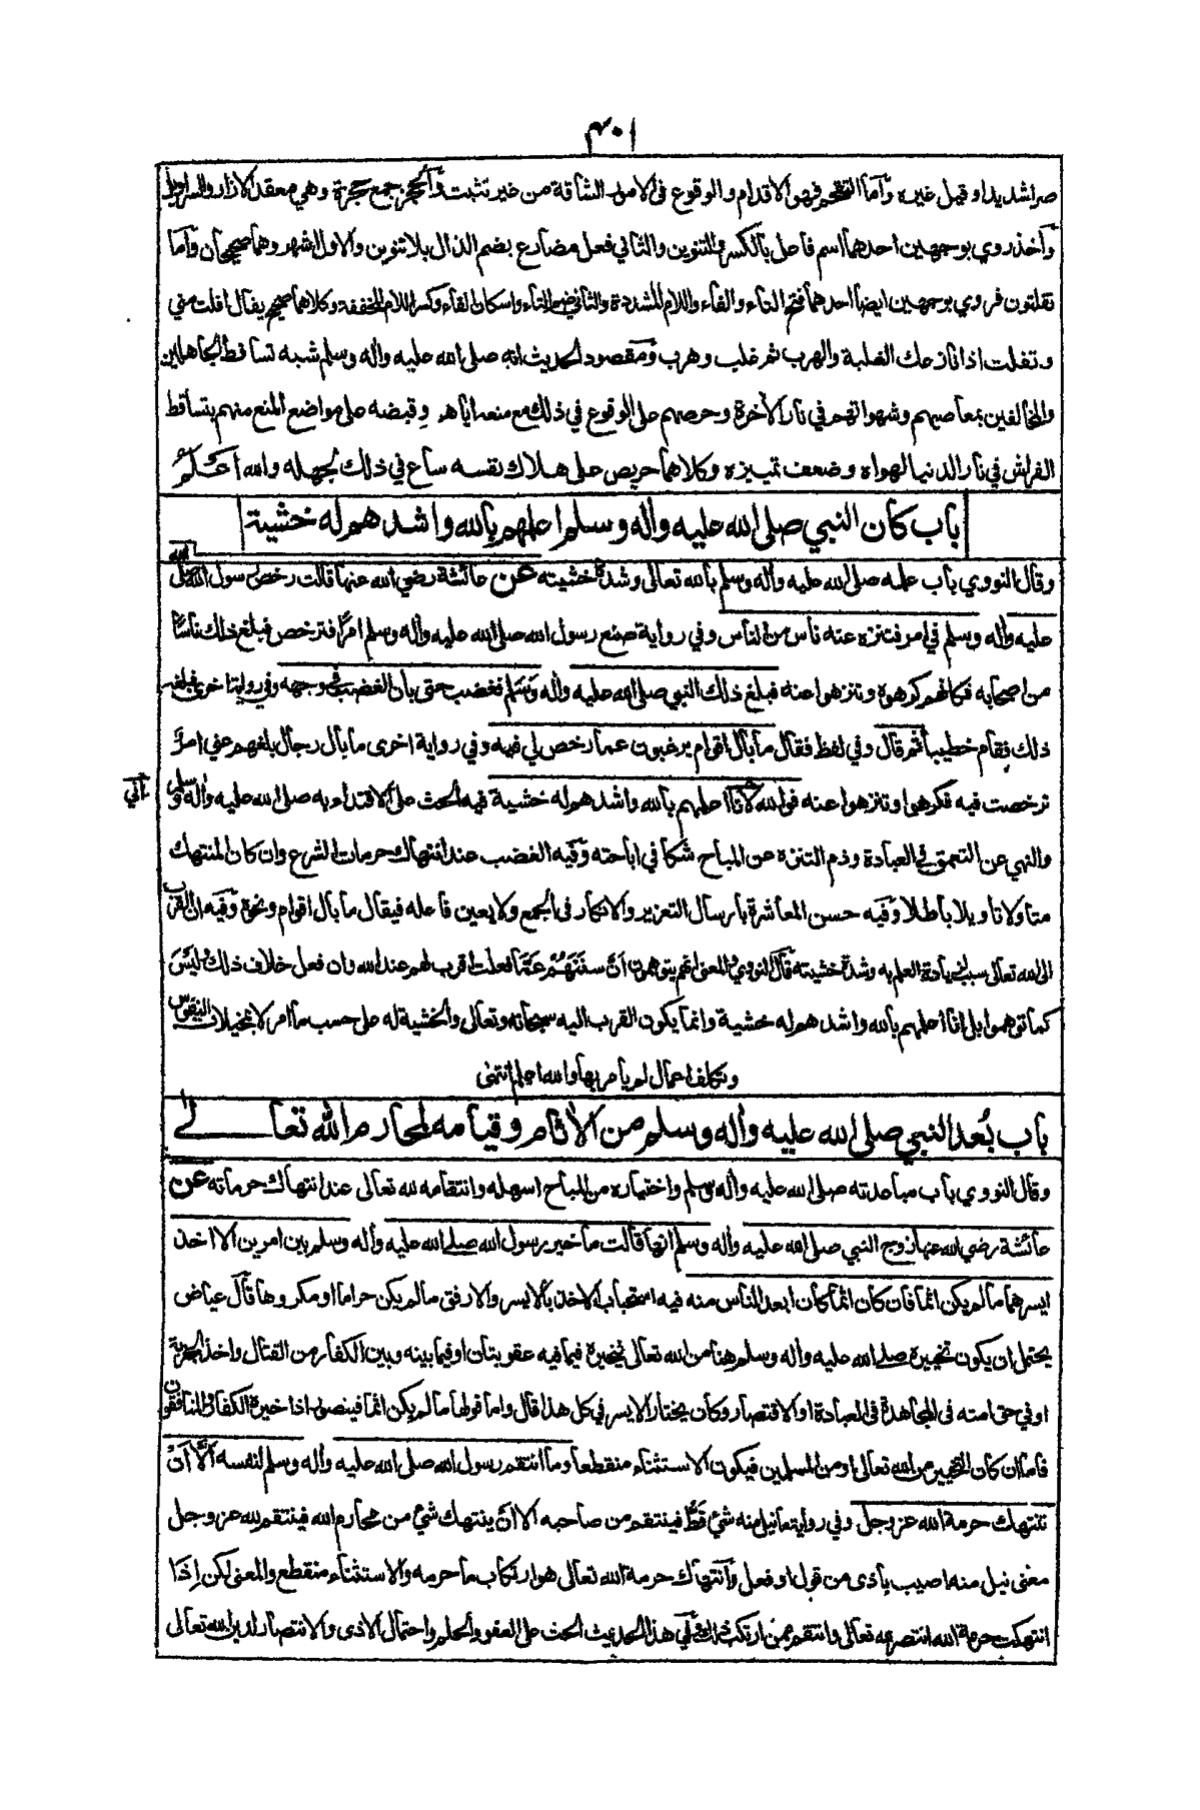 ٤٠١
صراشديدا وقيل غيره وأما التقحم فهو الاقدام والوقوع في الامور الشاقة من غير تثبت والحجز جمع حجزة وهي معقد الازار والسراويل
وآخذ روي بوجهين احدهما اسم فاعل بالكسر والتنوين والثاني فعل مضارع بضم الذال بلا تنوين والاول اشهر وهما صحيحان وأما
تفلتون فروي بوجهين ايضا احدهما فتح التاء والفاء واللام المشددة والثاني ضم التاء واسكان الفاء وكسر اللام المخففة وكلاهما صحيح يقال افلت مني
وتفلت اذا نازعك الغلبة والهرب ثم غلب وهرب ومقصود الحديث انه صلى الله عليه واله وسلم شبه تساقط الجاهلين
والمخالفين بمعاصيهم وشهواتهم في نار الآخرة وحرصهم على الوقوع في ذلك مع منعه اياهم وقبضه على مواضع المنع منهم بتساقط
الفراش في نار الدنيا لهواه وضعف تمييزه وكلاهما حريص على هلاك نفسه ساع في ذلك لجهله والله اعلم
باب كان النبي صلى الله عليه واله وسلم اعلمهم بالله واشدهم له خشية
وقال النووي باب علمه صلى الله عليه واله وسلم بالله تعالى وشدة خشيته عن عائشة رضي الله عنها قالت رخص رسول الله صلى الله
عليه واله وسلم في امر فتنزه عنه ناس من الناس وفي رواية صنع رسول الله صلى الله عليه واله وسلم امرا فترخص فبلغ ذلك ناسا
من اصحابه فكانهم كرهوه وتنزهوا عنه فبلغ ذلك النبي صلى الله عليه واله وسلم فغضب حتى بان الغضب في وجهه وفي رواية اخرى فبلغه
ذلك فقام خطيبا ثم قال وفي لفظ فقال ما بال اقوام يرغبون عما رخص لي فيه وفي رواية اخرى ما بال رجال بلغهم عني امر
ترخصت فيه فكرهوا وتنزهوا عنه فوالله لأنا اعلمهم بالله واشدهم له خشية فيه الحث على الاقتداء به صلى الله عليه واله وسلم
والنهي عن التعمق في العبادة وذم التنزه عن المباح شكا في اباحته وفيه الغضب عند انتهاك حرمات الشرع وان كان المنتهك
متأولا تاويلا باطلا وفيه حسن المعاشرة بارسال التعزير والانكار في الجمع ولا يعين فاعله فيقال ما بال اقوام ونحوه وفيه ان القرب
الى الله تعالى سبب لزيادة العلم به وشدة خشيته قال النووي والمعنى انهم يتوهمون ان سننهم عما فعلت اقرب لهم عند الله وان فعل خلاف ذلك وليس
كما توهموا بل انا اعلمهم بالله واشدهم له خشية وانما يكون القرب اليه سبحانه وتعالى والخشية له على حسب ما امر لا بتخيلات النفوس
وتكلف اعمال لم يامر بها والله اعلم انتهى
باب بعد النبي صلى الله عليه واله وسلم من الآثام وقيامه لمحارم الله تعالى
وقال النووي باب مباعدته صلى الله عليه واله وسلم واختياره من المباح اسهله وانتقامه لله تعالى عند انتهاك حرماته عن
عائشة رضي الله عنها زوج النبي صلى الله عليه واله وسلم انها قالت ما خير رسول الله صلى الله عليه واله وسلم بين امرين الا اخذ
ايسرهما ما لم يكن اثما فان كان اثما كان ابعد الناس منه فيه استحباب الاخذ بالايسر والارفق ما لم يكن حراما او مكروها قال عياض
يحتمل ان يكون تخييره صلى الله عليه واله وسلم هنا من الله تعالى يخيره فيما فيه عقوبتان او فيما بينه وبين الكفار من القتال واخذ الجزية
او في حق امته في المجاهدة في العبادة او الاقتصار وكان يختار الايسر في كل هذا قال واما قولها ما لم يكن اثما فيتصور اذا خيره الكفار والمنافقون
فاما ان كان التخيير من الله تعالى او من المسلمين فيكون الاستثناء منقطعا وما انتقم رسول الله صلى الله عليه واله وسلم لنفسه الا ان
تنتهك حرمة الله عز وجل وفي رواية ما نيل منه شيء قط فينتقم من صاحبه الا ان ينتهك شيء من محارم الله فينتقم لله عز وجل
معنى نيل منه اصيب باذى من قول او فعل وانتهاك حرمة الله تعالى هو ارتكاب ما حرمه والاستثناء منقطع والمعنى لكن اذا
انتهكت حرمة الله انتصر لله تعالى وانتقم ممن ارتكب ذلك وفي هذا الحديث الحث على العفو والحلم واحتمال الاذى والانتصار لدين الله تعالى